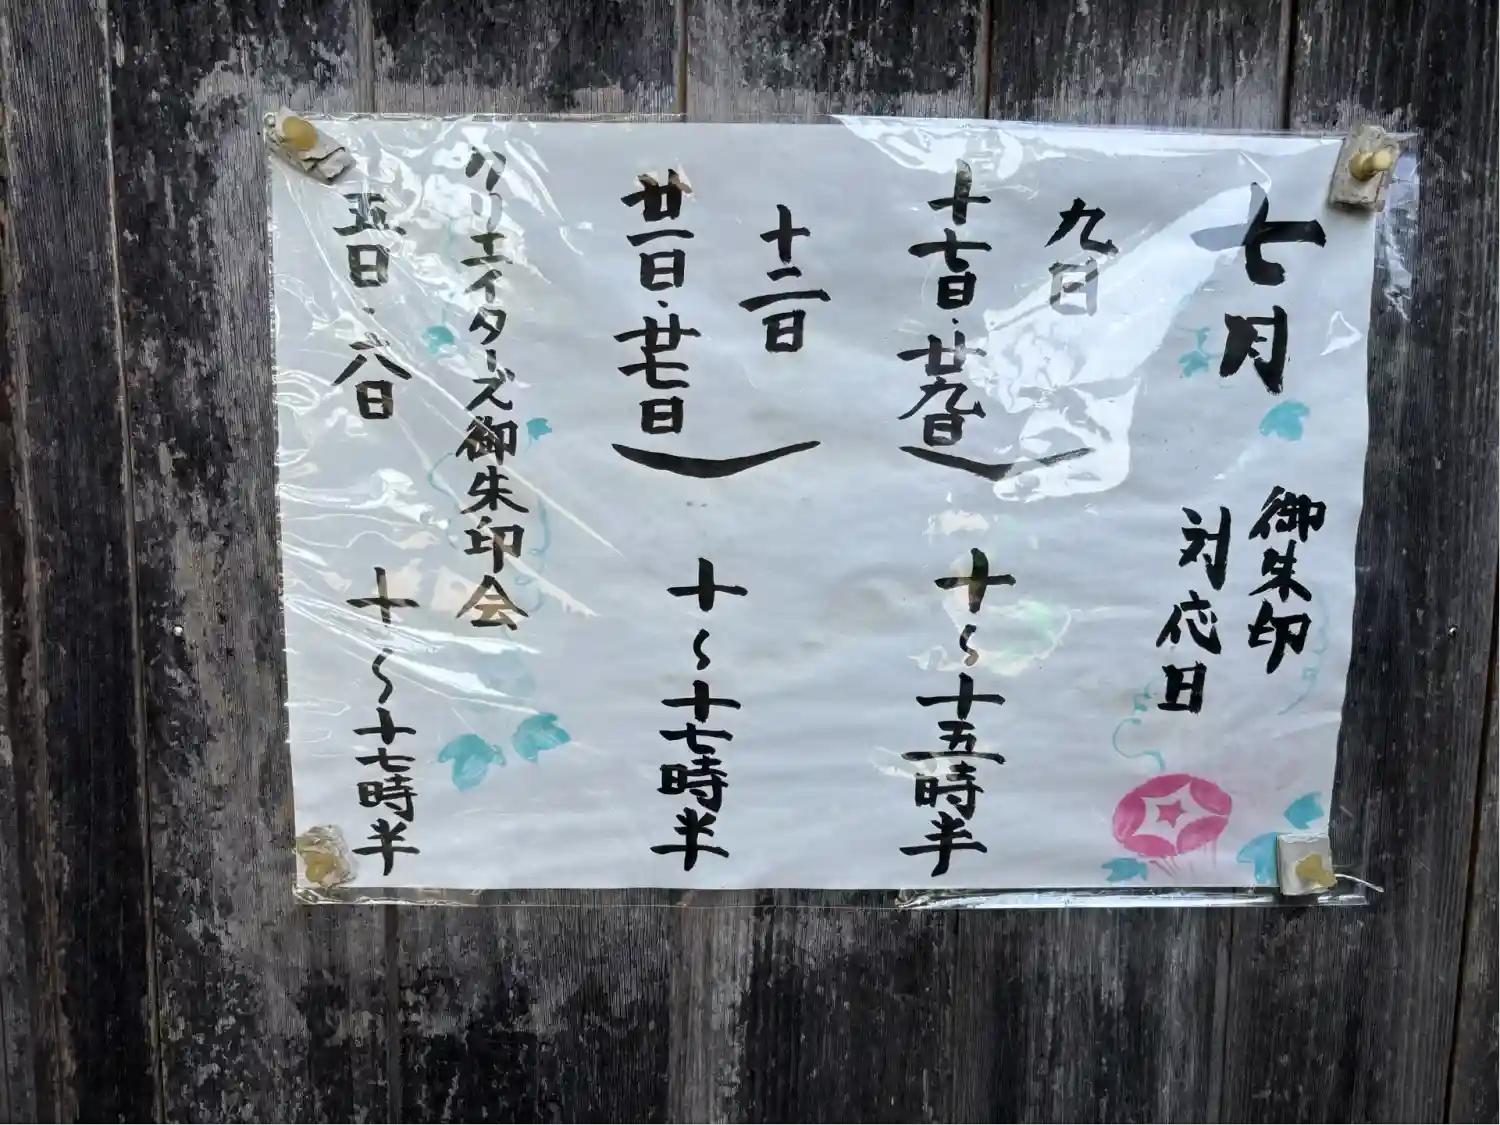 七月
御朱印
対応日
九日
十七日・廿九日
十〜十五時半
十二日
廿一日・廿七日
十〜十七時半
クリエイターズ御朱印会
五日・六日
十〜十七時半